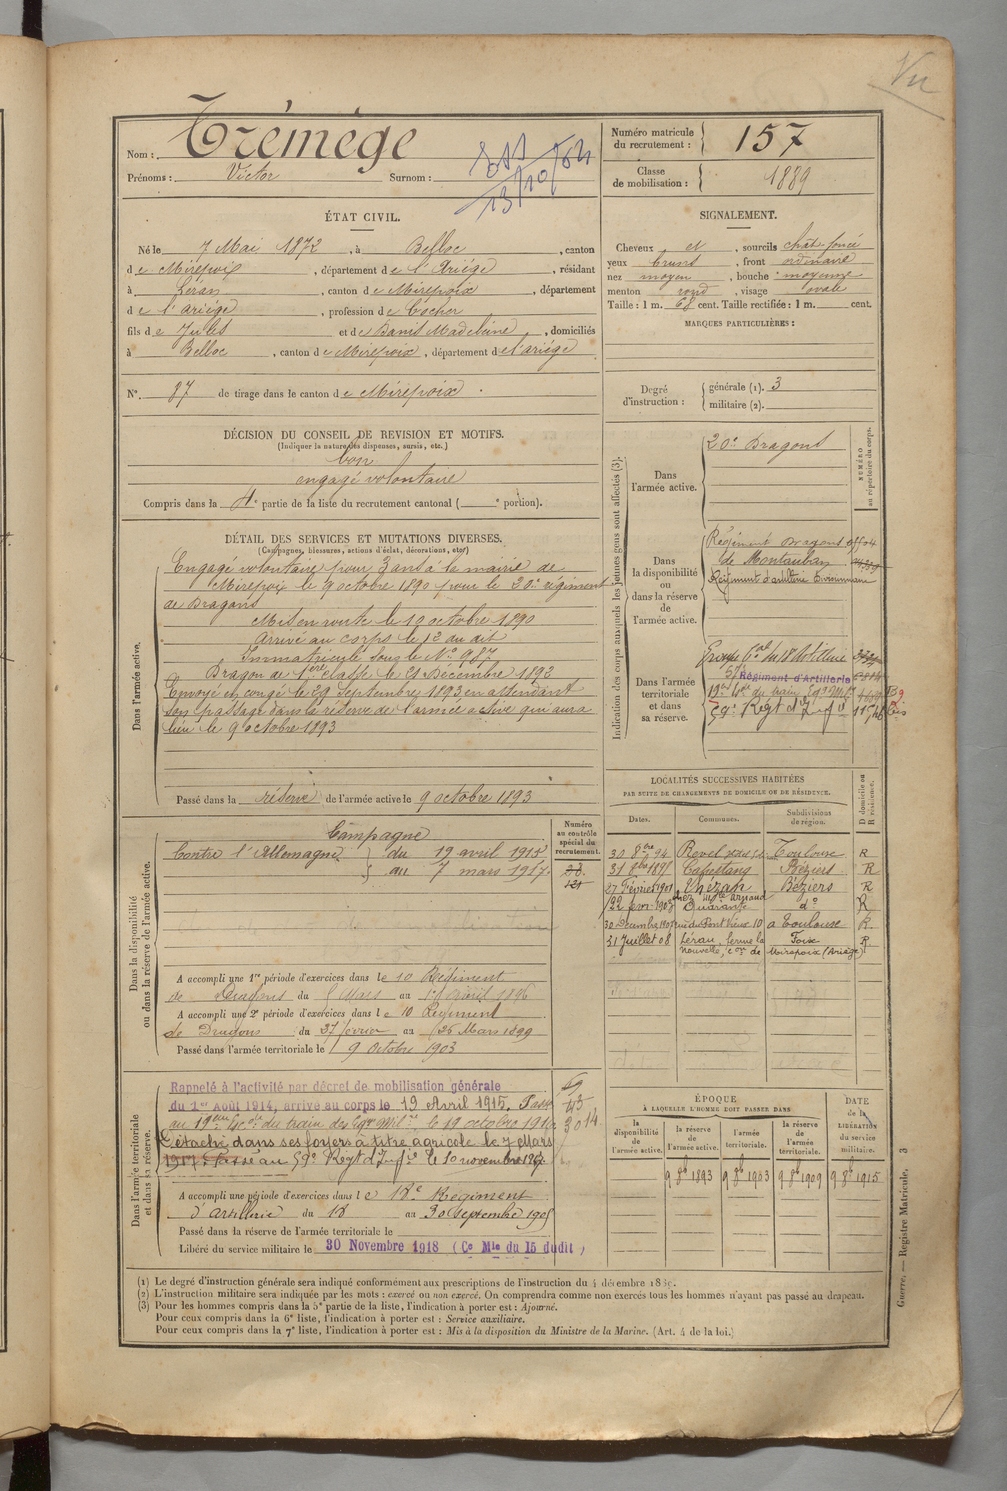 Vu
Nom : Trémège
Prénoms : Victor Surnom :
13/10/64
Numéro matricule du recrutement : 157
Classe de mobilisation : 1889
ÉTAT CIVIL.
Né le 7 Mai 1872, à Belloc, canton
de Mirepoix, département de l'Ariège, résidant
à Léran, canton de Mirepoix, département
de l'Ariège, profession de Cocher
fils de Jules et de Danis Madeleine, domiciliés
à Belloc, canton de Mirepoix, département de l'ariège
N° 87 de tirage dans le canton de Mirepoix.
DÉCISION DU CONSEIL DE REVISION ET MOTIFS.
(Indiquer la nature des dispenses, sursis, etc.)
bon
engagé volontaire
Compris dans la 4e partie de la liste du recrutement cantonal ( e portion).
DÉTAIL DES SERVICES ET MUTATIONS DIVERSES.
(Campagnes, blessures, actions d'éclat, décorations, etc.)
Dans l'armée active.
Engagé volontaire pour 3 ans à la mairie de
Mirepoix le 9 octobre 1890 pour le 20e régiment
de Dragons
Mis en route le 10 octobre 1890
Arrivé au corps le 12 du dit
Immatriculé sous le N° 987
Dragon de 1ère classe le 21 Décembre 1892
Envoyé en congé le 29 Septembre 1893 en attendant
son passage dans la réserve de l'armée active qui aura
lieu le 9 octobre 1893
Passé dans la réserve de l'armée active le 9 octobre 1893
Dans la disponibilité ou dans la réserve de l'armée active.
Numéro au contrôle spécial du recrutement.
Campagne
Contre l'Allemagne. du 19 avril 1915
au 7 mars 1917.
121
A accompli une 1re période d'exercices dans le 10 Régiment
de Dragons du Mars au avril 1896
A accompli une 2e période d'exercices dans le 10 Régiment
de Dragons du 27 février au 26 Mars 1899
Passé dans l'armée territoriale le 9 Octobre 1903
Dans l'armée territoriale et dans sa réserve.
Rappelé à l'activité par décret de mobilisation générale
du 1er Août 1914, arrivé au corps le 19 Avril 1915. Passé
au 19e du train des Eqges Milres le 19 octobre 1916
Détaché dans ses foyers à titre agricole le 7 Mars
1917. Passé au 59e Regt d'Infie le 10 novembre 1917
A accompli une période d'exercices dans le 18e Régiment
d'Artillerie du 18 au 30 Septembre 1905
Passé dans la réserve de l'armée territoriale le
Libéré du service militaire le 30 Novembre 1918 (Ce Mle du 15 dudit)
SIGNALEMENT.
Cheveux et, sourcils chât. foncé
yeux bruns, front ordinaire
nez moyen, bouche moyenne
menton rond, visage ovale
Taille : 1 m. 68 cent. Taille rectifiée : 1 m. cent.
MARQUES PARTICULIÈRES :
Degré d'instruction : générale (1). 3
militaire (2).
Indication des corps auxquels les jeunes gens sont affectés (3).
NUMÉRO au répertoire du corps.
Dans l'armée active.
20e Dragons
Dans la disponibilité ou dans la réserve de l'armée active.
Régiment Dragons
de Montauban
Régiment d'artillerie
Dans l'armée territoriale et dans sa réserve.
Groupe du 18e Artillerie
Régiment d'Artillerie
19e du train Eqges Mres
59e Regt d'Infie
LOCALITÉS SUCCESSIVES HABITÉES
PAR SUITE DE CHANGEMENTS DE DOMICILE OU DE RÉSIDENCE.
Dates. Communes. Subdivisions de région. D domicile ou R résidence.
30 8bre 94 Revel Toulouse R
31 8bre 1895 Capestang Béziers R
27 Février 1901 Thézan Béziers R
22 janv. 1905 Quarante do R
30 Décembre 1907 rue du Pont Vieux 10 a Toulouse R.
31 Juillet 08 Léran, ferme la Foix R.
nouvelle, con de Mirepoix (Ariège)
ÉPOQUE
À LAQUELLE L'HOMME DOIT PASSER DANS
la disponibilité de l'armée active. la réserve de l'armée active. l'armée territoriale. la réserve de l'armée territoriale.
DATE de la LIBÉRATION du service militaire.
9 8b 1893 9 8b 1903 9 8b 1909 9 8b 1915
Guerre. — Registre Matricule. 3
(1) Le degré d'instruction générale sera indiqué conformément aux prescriptions de l'instruction du 4 décembre 1889.
(2) L'instruction militaire sera indiquée par les mots : exercé ou non exercé. On comprendra comme non exercés tous les hommes n'ayant pas passé au drapeau.
(3) Pour les hommes compris dans la 5e partie de la liste, l'indication à porter est : Ajourné.
Pour ceux compris dans la 6e liste, l'indication à porter est : Service auxiliaire.
Pour ceux compris dans la 7e liste, l'indication à porter est : Mis à la disposition du Ministre de la Marine. (Art. 4 de la loi.)